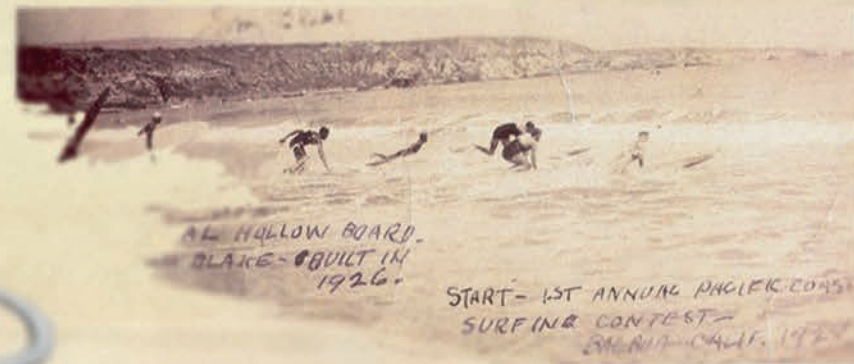 AL HOLLOW BOARD.
BLAKE - BUILT IN
1926.
START - 1ST ANNUAL PACIFIC COAS
SURFING CONTEST -
CALIF.